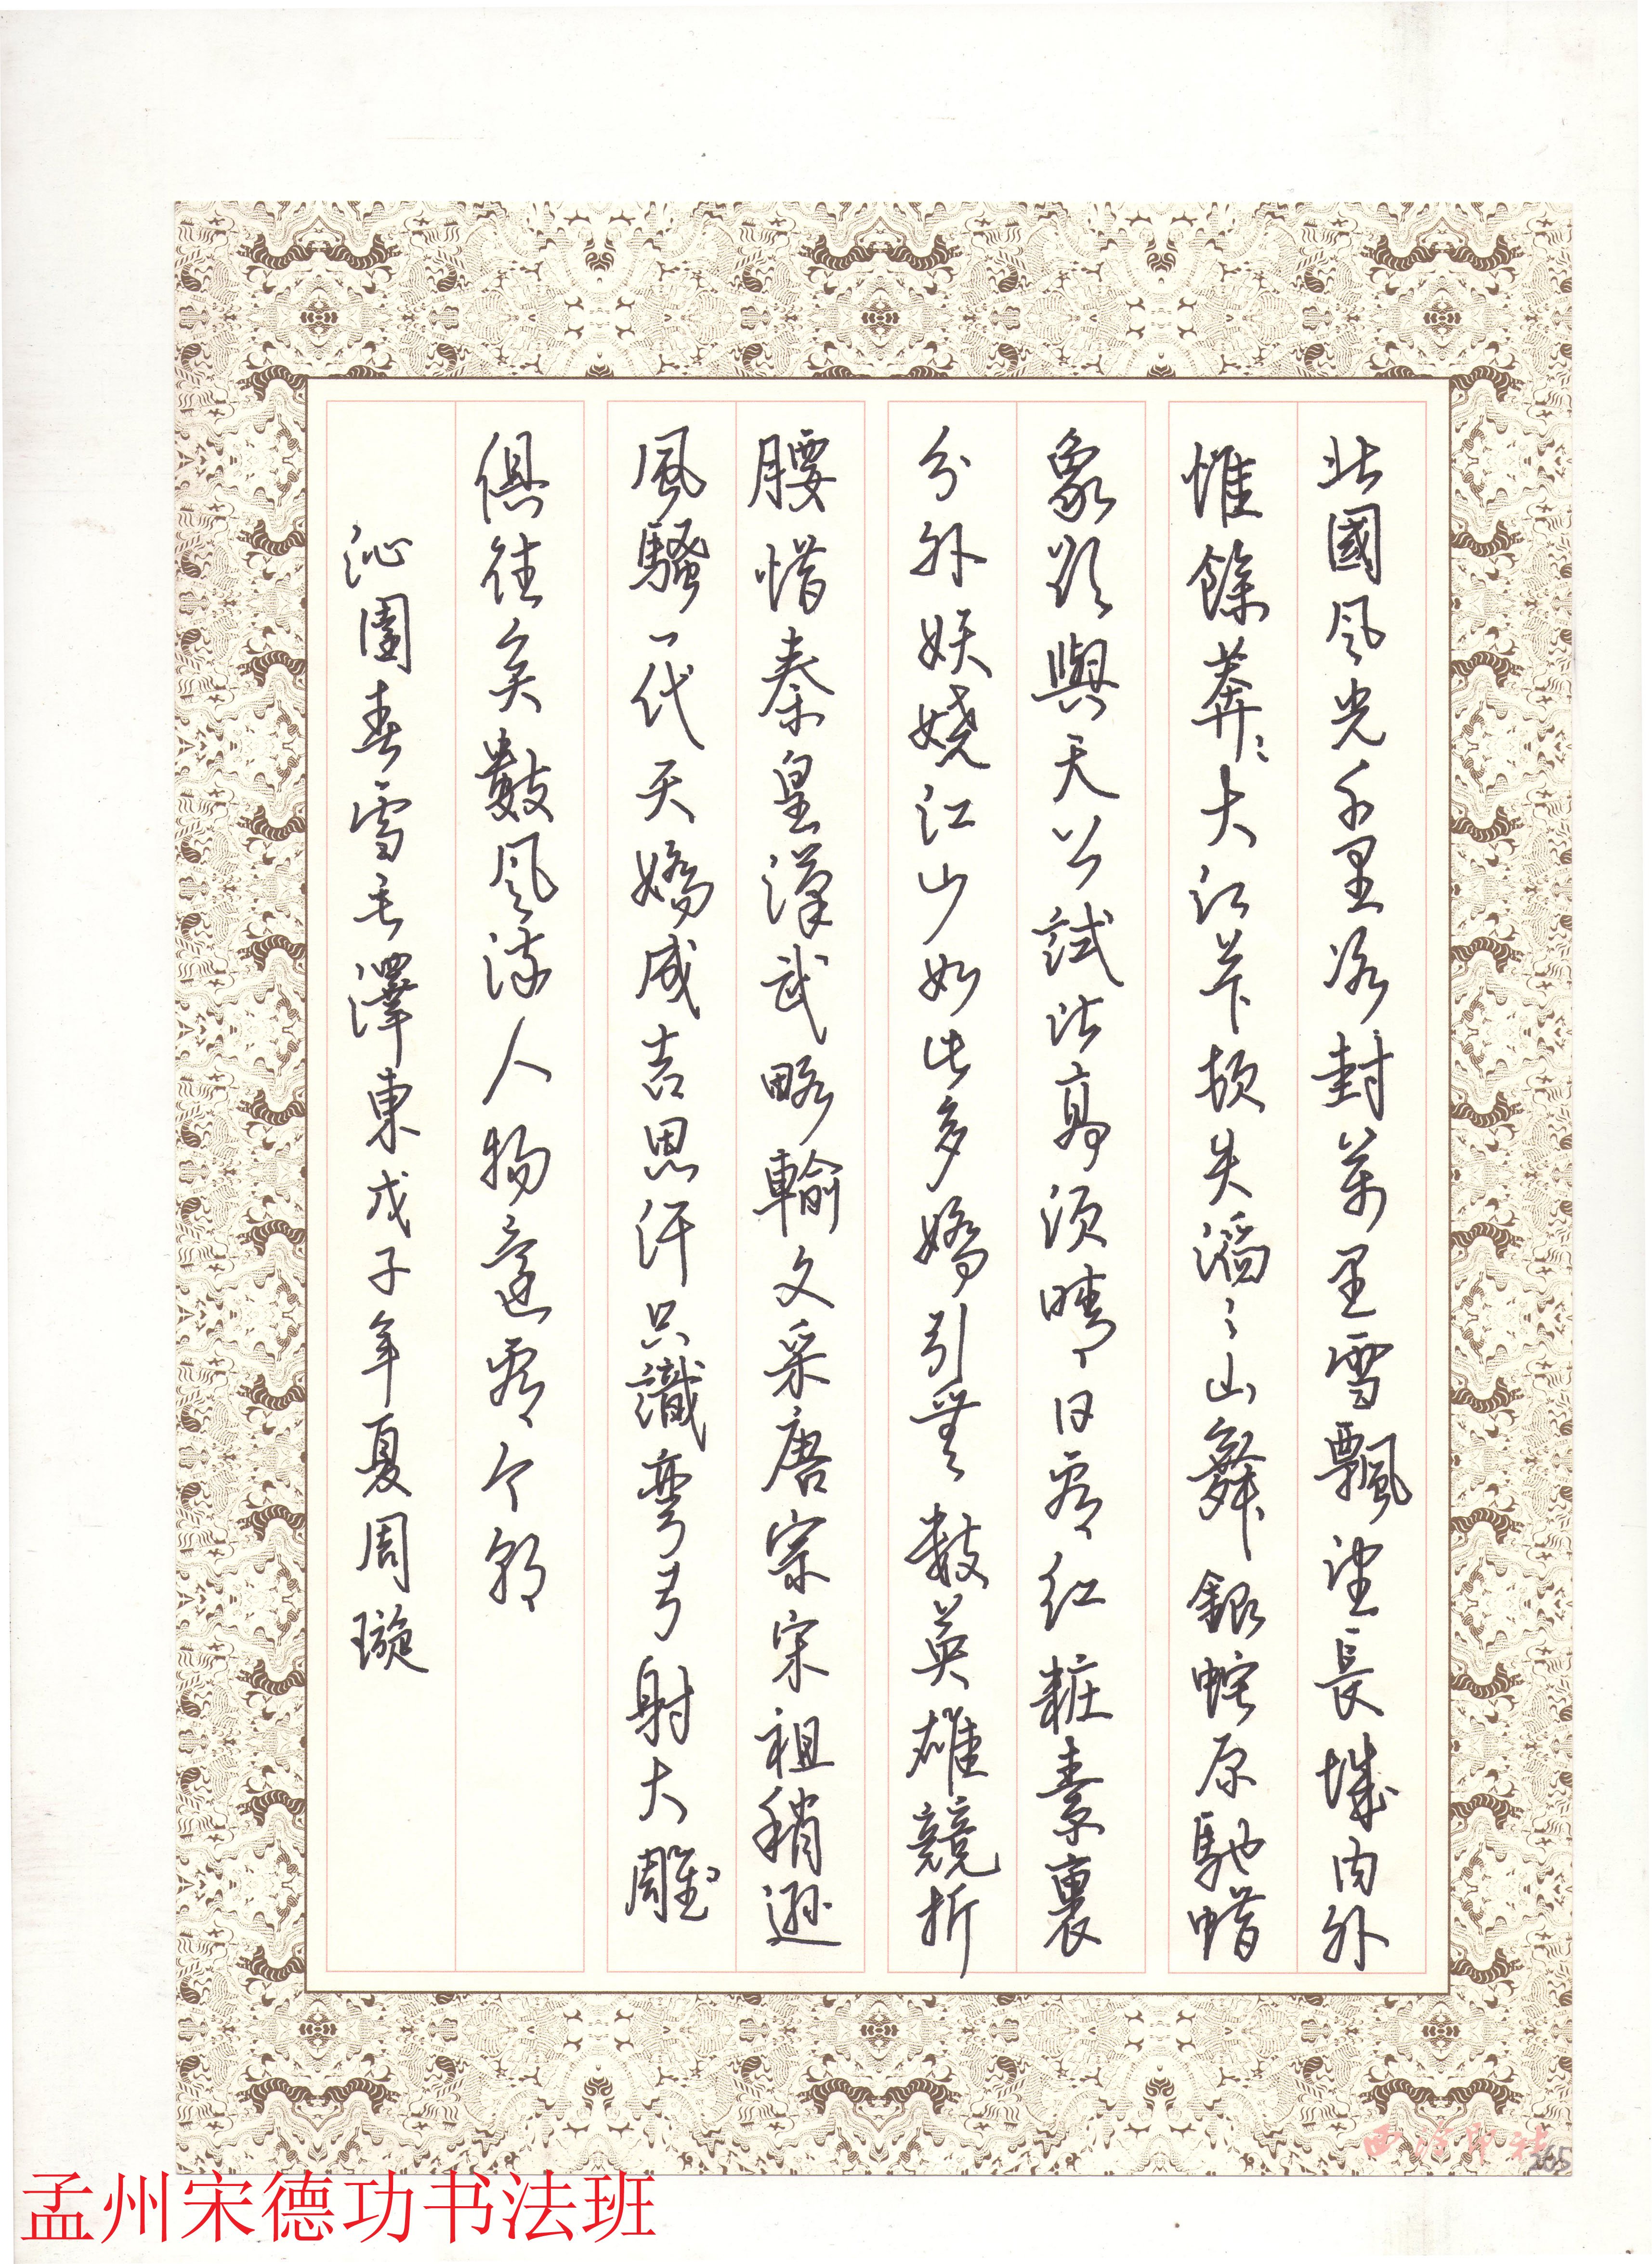 北國风光千里冰封萬里雪飄望長城内外
惟餘莽〻大河上下頓失滔〻山舞銀蛇原馳蜡
象欲與天公試比高須晴日看红粧素裹
分外妖嬈江山如此多嬌引無數英雄競折
腰惜秦皇漢武略輸文采唐宗宋祖稍遜
風騷一代天嬌成吉思汗只識弯弓射大雕
俱往矣數风流人物還看今朝
沁園春雪毛澤東戊子年夏周璇
西泠印社
265
孟州宋德功书法班